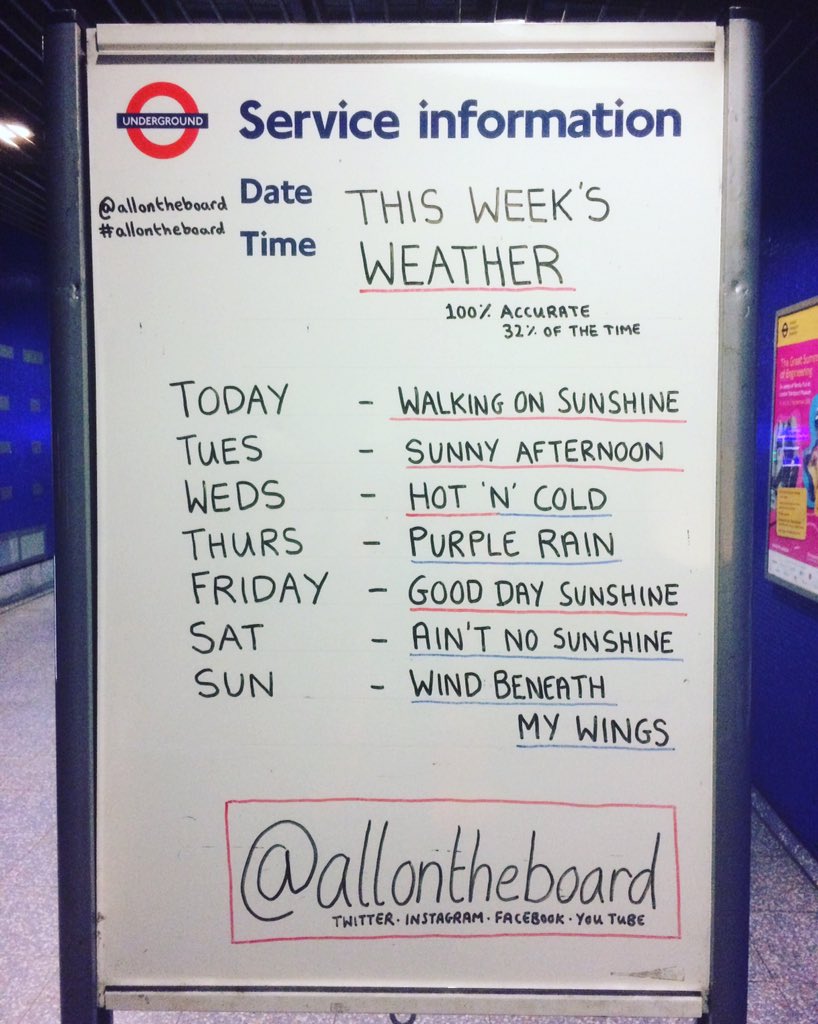 UNDERGROUND
Service information
@allontheboard
#allontheboard
Date
Time
THIS WEEK'S
WEATHER
100% ACCURATE
32% OF THE TIME
TODAY - WALKING ON SUNSHINE
TUES - SUNNY AFTERNOON
WEDS - HOT 'N' COLD
THURS - PURPLE RAIN
FRIDAY - GOOD DAY SUNSHINE
SAT - AIN'T NO SUNSHINE
SUN - WIND BENEATH
MY WINGS
@allontheboard
TWITTER · INSTAGRAM · FACEBOOK · YOU TUBE
The Great Summ
of Engineering